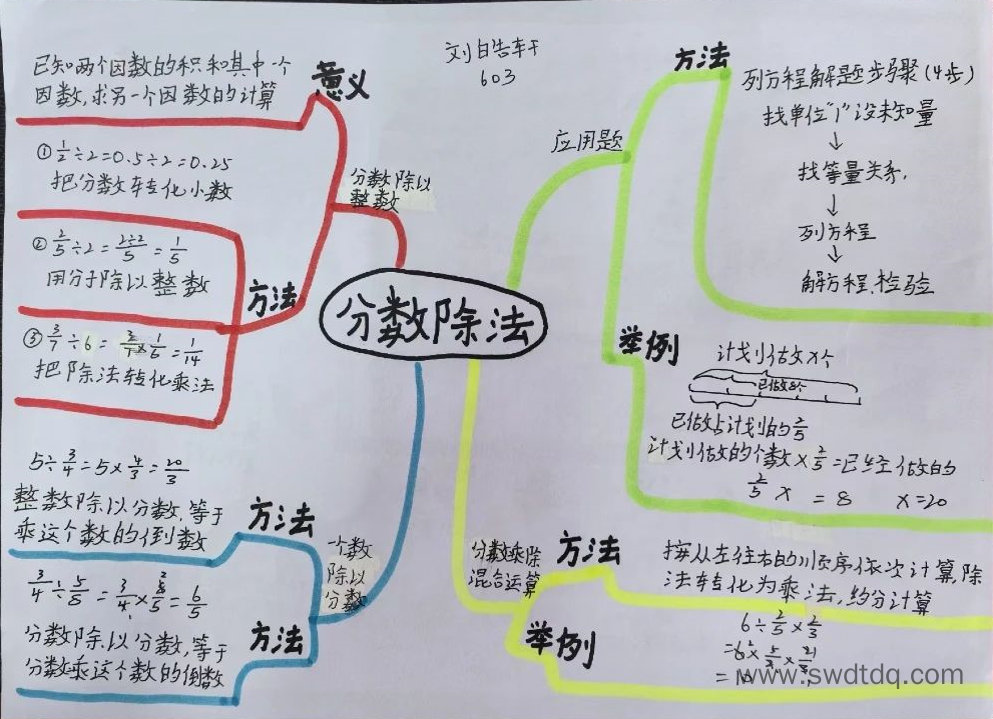 603
意义
已知两个因数的积和其中一个
因数,求另一个因数的计算
①1/2÷2=0.5÷2=0.25
把分数转化小数
②2/5÷2=2÷2/5=1/5
用分子除以整数
③3/7÷6=3/7×1/6=1/14
把除法转化乘法
方法
分数除以
整数
分数除法
5÷3/4=5×4/3=20/3
整数除以分数,等于
乘这个数的倒数
方法
3/4÷5/8=3/4×8/5=6/5
分数除以分数,等于
分数乘这个数的倒数
方法
一个数
除以
分数
应用题
方法
列方程解题步骤(4步)
找单位"1"设未知量
↓
找等量关系.
↓
列方程
↓
解方程.检验
举例
计划做x个
已做8个
已做占计划的2/5
计划做的个数×2/5=已经做的
2/5x=8 x=20
分数乘除
混合运算
方法
按从左往右的顺序依次计算,除
法转化为乘法,约分计算
举例
6÷2/5×2/3
www.swdtdq.com